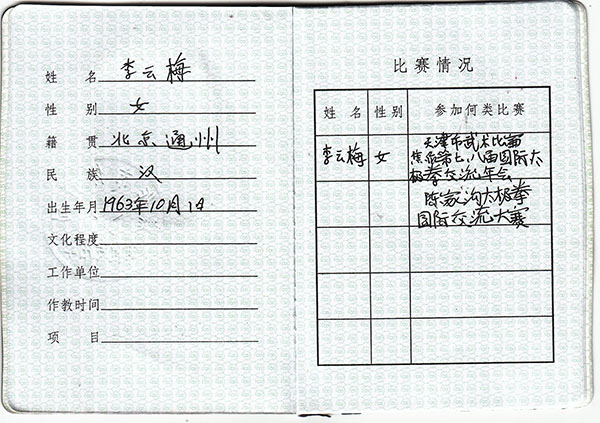 姓 名 李云梅
性 别 女
籍 贯 北京通州
民 族 汉
出生年月 1963年10月1日
文化程度
工作单位
作教时间
项 目
比赛情况
姓 名 性别 参加何类比赛
李云梅 女 天津市武术比赛
焦作第七、八届国际太
极拳交流年会
陈家沟太极拳
国际交流大赛